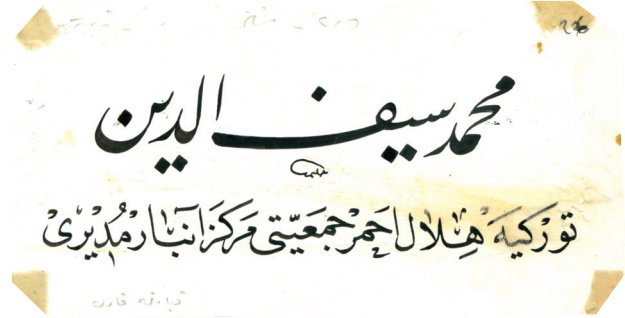 محمد سيف الدين
توركيه هلال احمر جمعيتى مركز انبار مديرى